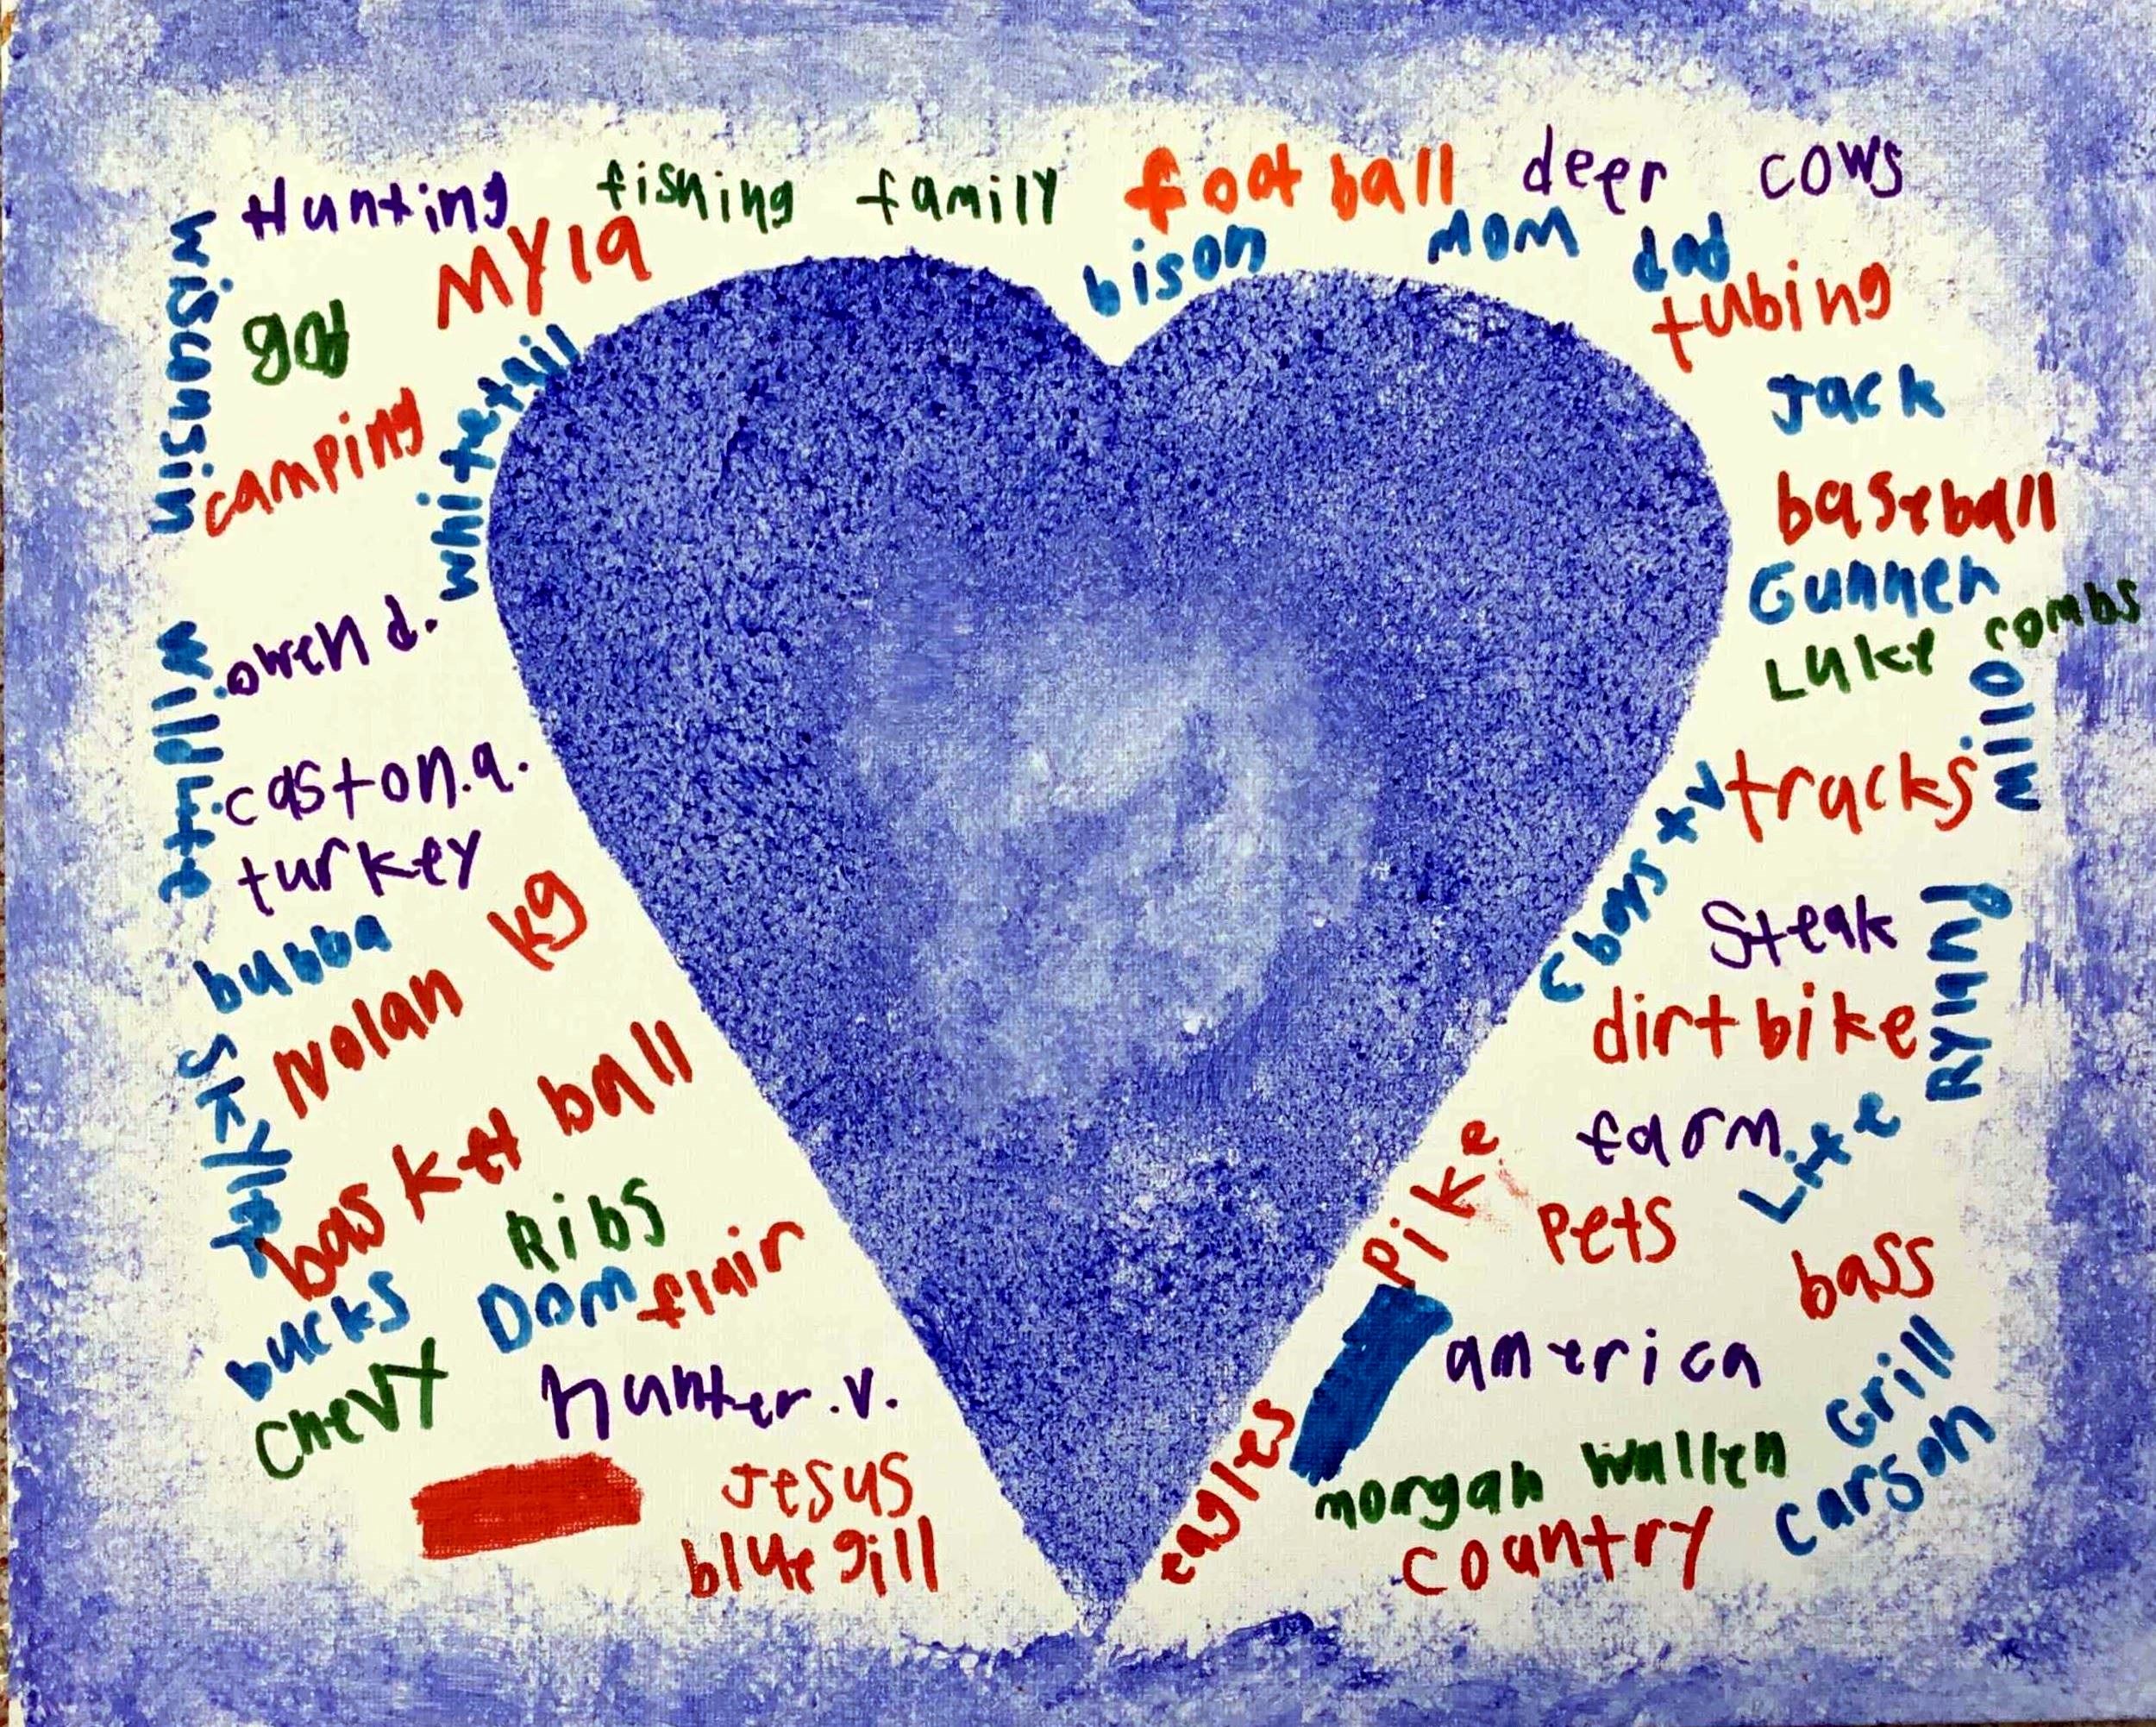 Hunting
fishing
family
foot ball
deer
cows
MYla
bison
mom
dad
tubing
god
whitetail
camping
Jack
baseball
Gunner
Luke combs
milo
owen d.
caston.a.
turkey
tracks
kg
bubba
Nolan
Steak
Rynny
dirt bike
basket ball
farm
Life
Ribs
pike
pets
bass
Dom
flair
bucks
chevy
hunter.v.
america
Grill
carson
morgan wallen
Jesus
blue gill
eagles
country